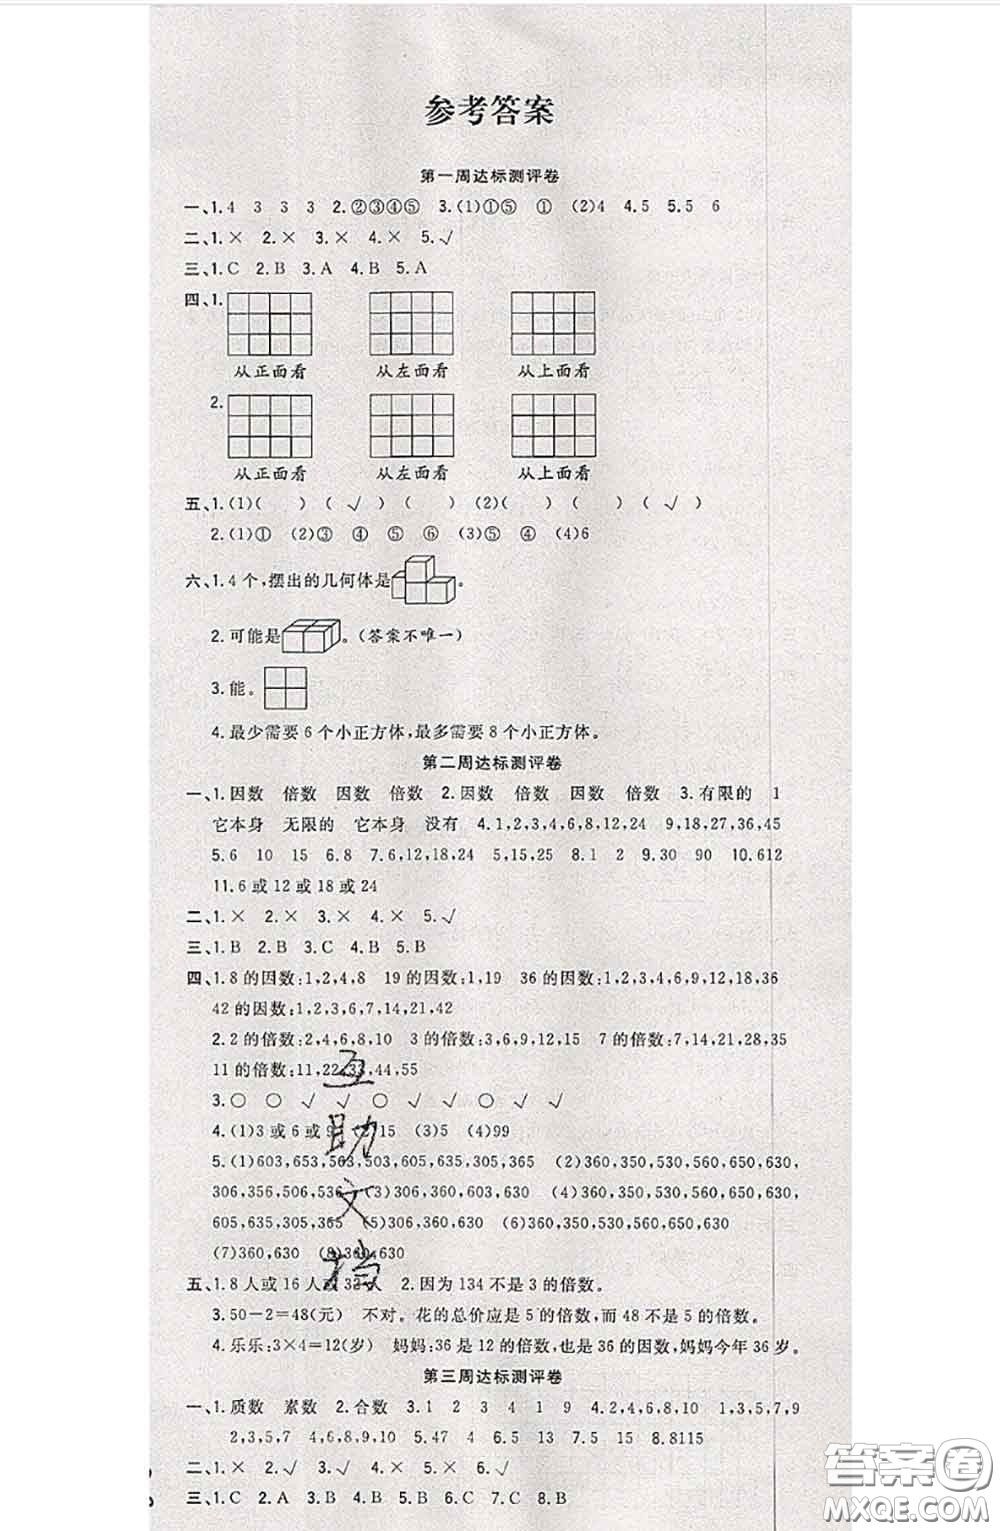 参考答案
第一周达标测评卷
一、1.4 3 3 3 2.②③④⑤ 3.(1)①⑤ ① (2)4 4.5 5.5 6
二、1.× 2.× 3.× 4.× 5.√
三、1.C 2.B 3.A 4.B 5.A
四、1.
从正面看 从左面看 从上面看
2.
从正面看 从左面看 从上面看
五、1.(1)( ) ( √ ) ( ) (2)( ) ( ) ( √ )
2.(1)① (2)③ ④ ⑤ ⑥ (3)⑤ ④ (4)6
六、1.4个,摆出的几何体是 。
2.可能是 。(答案不唯一)
3.能。
4.最少需要6个小正方体,最多需要8个小正方体。
第二周达标测评卷
一、1.因数 倍数 因数 倍数 2.因数 倍数 因数 倍数 3.有限的 1
它本身 无限的 它本身 没有 4.1,2,3,4,6,8,12,24 9,18,27,36,45
5.6 10 15 6.8 7.6,12,18,24 5,15,25 8.1 2 9.30 90 10.612
11.6或12或18或24
二、1.× 2.× 3.× 4.× 5.√
三、1.B 2.B 3.C 4.B 5.B
四、1.8的因数:1,2,4,8 19的因数:1,19 36的因数:1,2,3,4,6,9,12,18,36
42的因数:1,2,3,6,7,14,21,42
2.2的倍数:2,4,6,8,10 3的倍数:3,6,9,12,15 7的倍数:7,14,21,28,35
11的倍数:11,22,33,44,55
3.○ ○ √ √ ○ √ √ ○ √ √
4.(1)3或6或9 (2)15 (3)5 (4)99
5.(1)603,653,563,503,605,635,305,365 (2)360,350,530,560,650,630,
306,356,506,536 (3)306,360,603,630 (4)360,350,530,560,650,630,
605,635,305,365 (5)306,360,630 (6)360,350,530,560,650,630
(7)360,630 (8)360,630
五、1.8人或16人或32人 2.因为134不是3的倍数。
3.50-2=48(元) 不对。花的总价应是5的倍数,而48不是5的倍数。
4.乐乐:3×4=12(岁) 妈妈:36是12的倍数,也是36的因数,妈妈今年36岁。
第三周达标测评卷
一、1.质数 素数 2.合数 3.1 2 3 4 1 9 4.2,4,6,8,10 1,3,5,7,9
2,3,5,7 4,6,8,9,10 5.47 4 6.5 13 7.5 15 8.8115
二、1.× 2.√ 3.√ 4.× 5.× 6.√
三、1.C 2.A 3.B 4.B 5.B 6.C 7.C 8.B
互助文档
答案圈
MXQE.COM